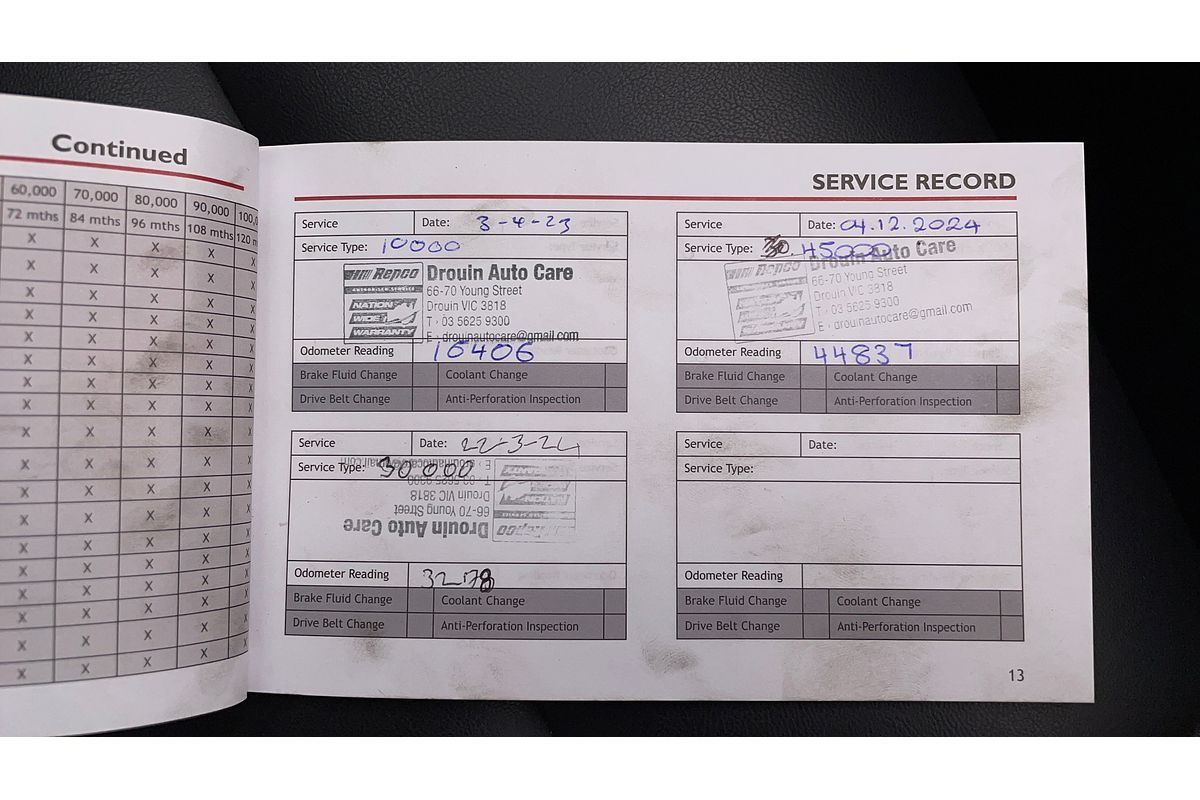 Continued
60,000 70,000 80,000 90,000
72 mths 84 mths 96 mths 108 mths
X X X X
X X X X
X X X X
X X X X
X X X X
X X X X
X X X X
X X X X
X X X X
X X X X
X X X X
X X X X
X X X X
X X X X
X X X X
X X X X
X X X X
SERVICE RECORD
Service Date: 3-4-23
Service Type: 10000
Repco
AUTHORISED SERVICE
NATION
WIDE
WARRANTY
Drouin Auto Care
66-70 Young Street
Drouin VIC 3818
T · 03 5625 9300
E · drouinautocare@gmail.com
Odometer Reading 16406
Brake Fluid Change Coolant Change
Drive Belt Change Anti-Perforation Inspection
Service Date: 04.12.2024
Service Type: 45000
Repco
Drouin Auto Care
66-70 Young Street
Drouin VIC 3818
T · 03 5625 9300
E · drouinautocare@gmail.com
Odometer Reading 44837
Brake Fluid Change Coolant Change
Drive Belt Change Anti-Perforation Inspection
Service Date: 22-3-24
Service Type: 30000
Repco
Drouin Auto Care
66-70 Young Street
Drouin VIC 3818
T · 03 5625 9300
E · drouinautocare@gmail.com
Odometer Reading
Brake Fluid Change Coolant Change
Drive Belt Change Anti-Perforation Inspection
Service Date:
Service Type:
Odometer Reading
Brake Fluid Change Coolant Change
Drive Belt Change Anti-Perforation Inspection
13